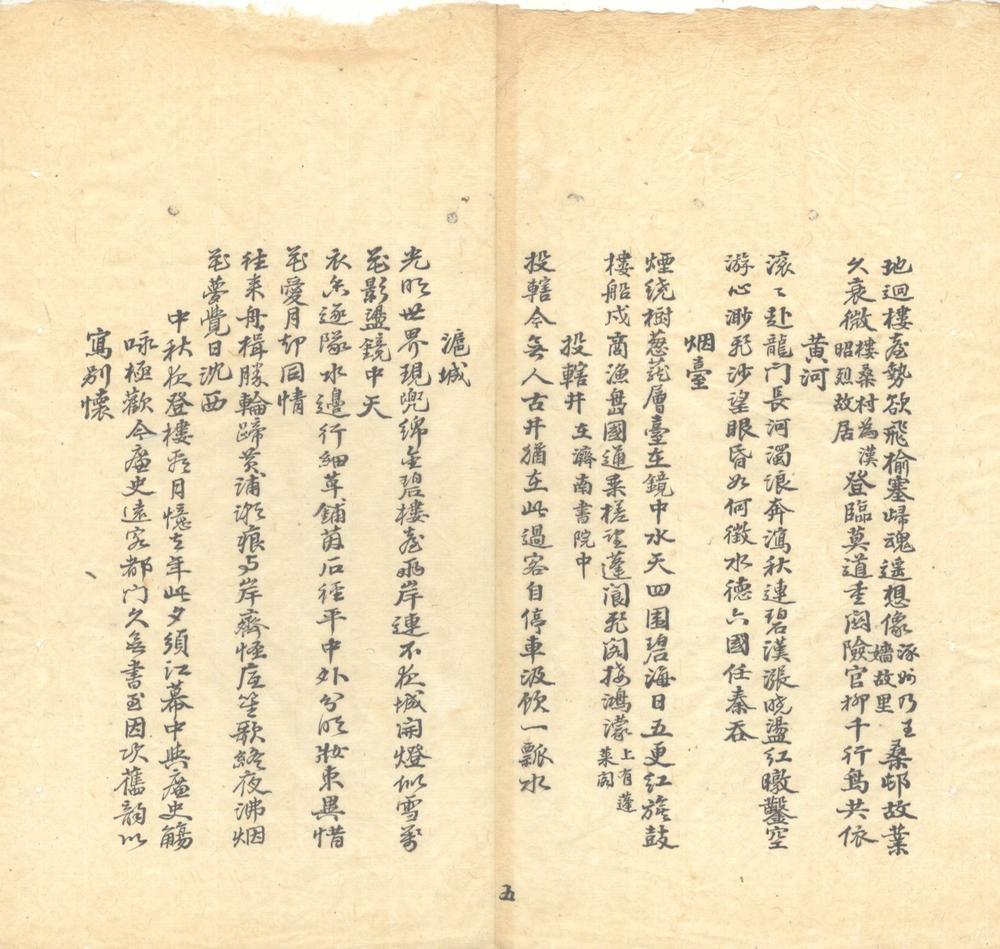 地迥樓臺勢欲飛榆塞歸魂遙想像涿州乃王嬙故里桑邨故業
久衰微樓桑村為漢昭烈故居登臨莫道重關險官柳千行鳥共依
黃河
滾〻赴龍門長河濁浪奔瀉秋連碧漢漲曉盪紅暾鑿空
游心渺飛沙望眼昏如何徵水德六國任秦吞
烟臺
煙繞樹蔥蘢層臺在鏡中水天四围碧海日五更紅旂鼓
樓船戍商漁島國通乘槎望蓬閬飛閣接鴻濛上有蓬萊閣
投轄井在濟南書院中
投轄今無人古井猶在此過客自停車汲飲一瓢水
滬城
光明世界現兜綿金碧樓臺兩岸連不夜城開燈似雪萬
花影盪鏡中天
衣香逐隊水邊行細草鋪茵石徑平中外分明妝束異惜
花愛月却同情
往来舟楫勝輪蹄黃浦潮痕与岸齊怪底笙歌終夜沸烟
花夢覺日沈西
中秋夜登樓看月憶去年此夕須江幕中與廬史觴
咏極歡今廬史遠客都門久無書至因次舊韵以
寫別懷
五